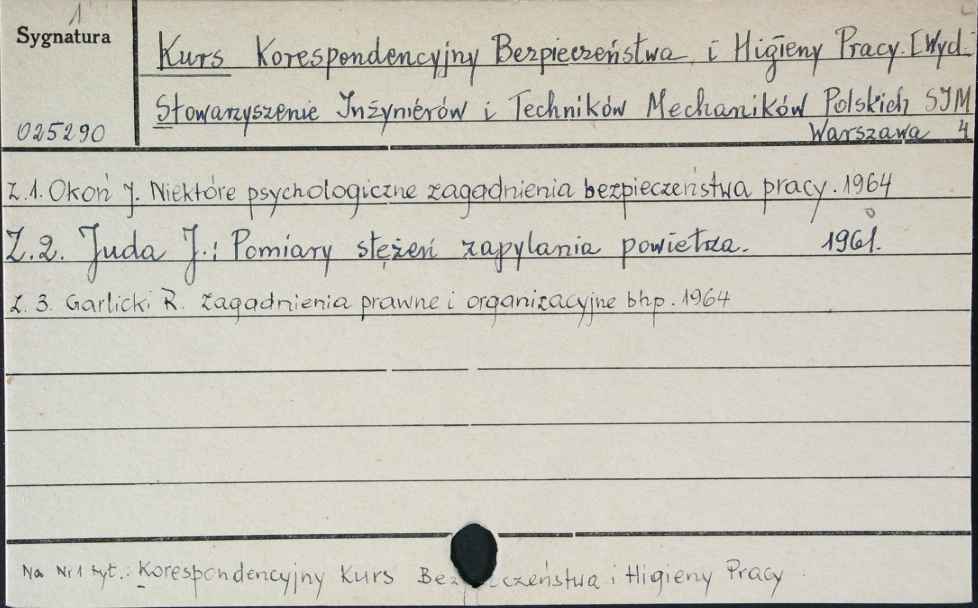 1
Sygnatura
Kurs Korespondencyjny Bezpieczeństwa i Higieny Pracy. [Wyd.
Stowarzyszenie Inżynierów i Techników Mechaników Polskich SIM
025290
Warszawa 4
Z.1. Okoń J. Niektóre psychologiczne zagadnienia bezpieczeństwa pracy. 1964
Z.2. Juda J.: Pomiary stężeń zapylania powietrza. 1961.
Z. 3. Garlicki R. Zagadnienia prawne i organizacyjne bhp. 1964
Na Nr 1 tyt.: Korespondencyjny Kurs Bez eczeństwa i Higieny Pracy